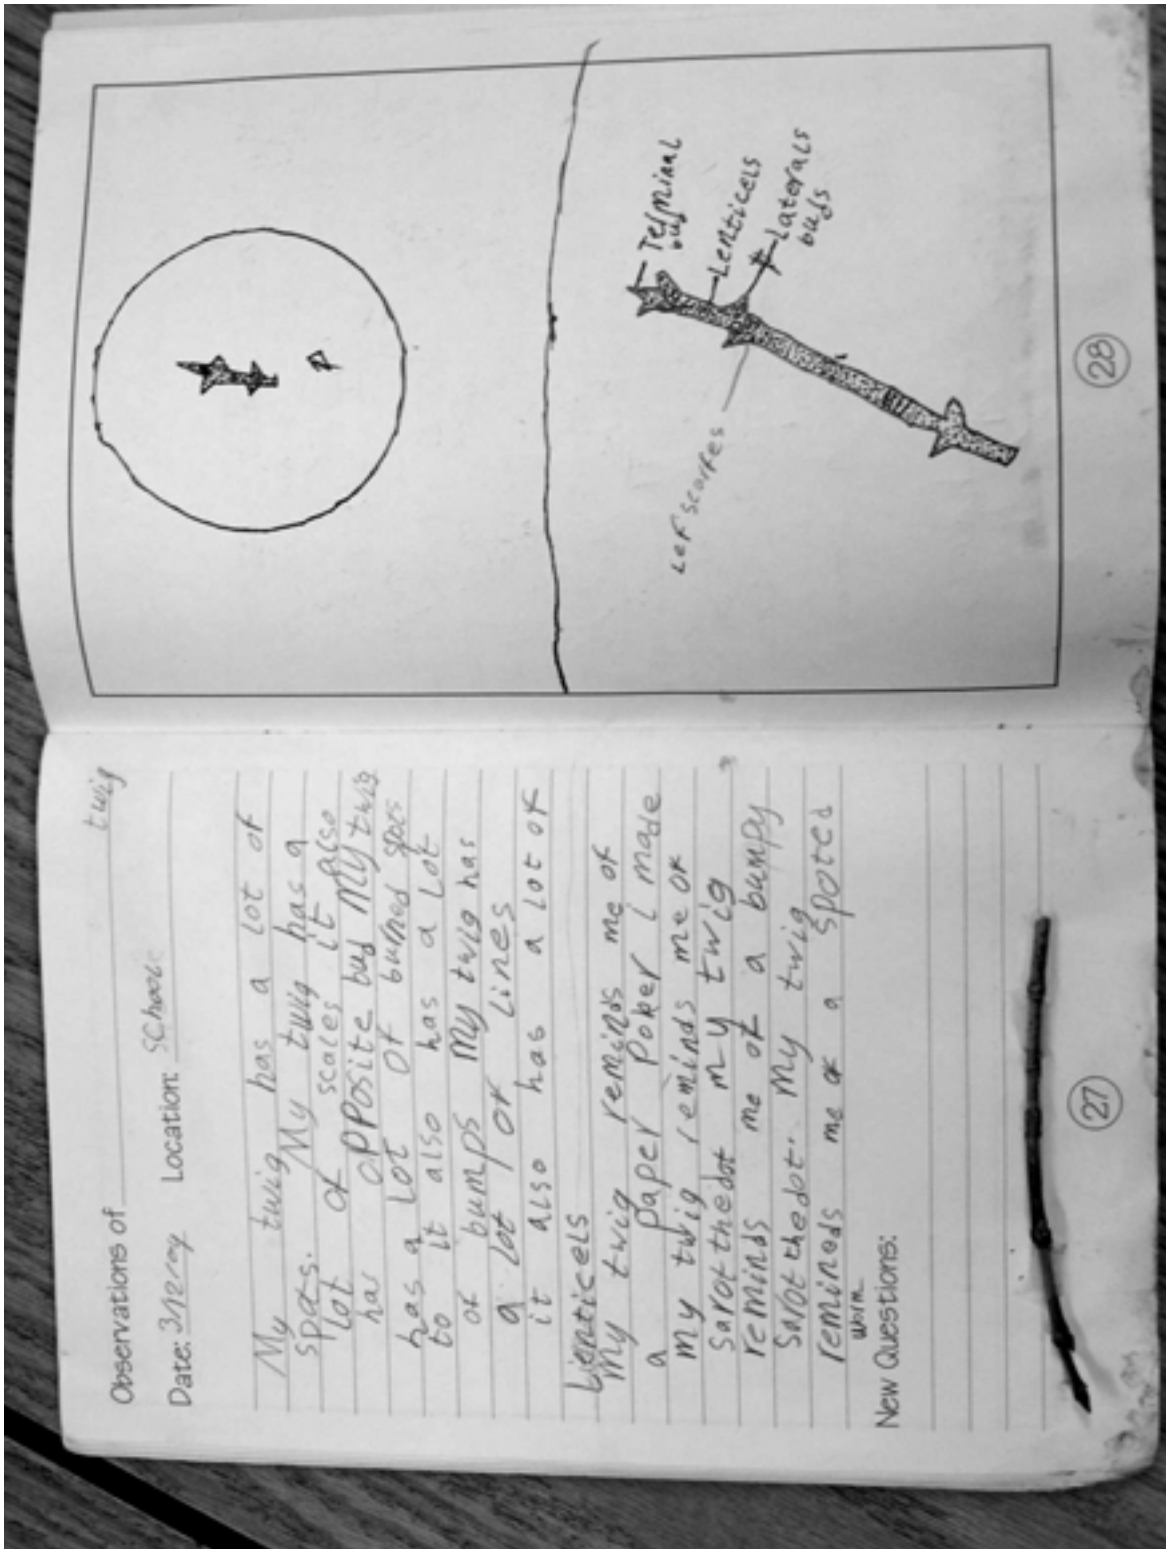 Observations of twig
Date: Location: School
My twig has a lot of
spots. My twig has a
lot of scales it also
has opposite bud My twig
has a lot of burned spots
to it also has a lot
of bumps My twig has
a lot of lines
it also has a lot of
Lienticels
my twig reminds me of
a paper Poker i made
my twig reminds me of
my twig
reminds me of a bumpy
my twig
reminds me of a spoted
worm
New Questions:
27
Terminal
bud
Lenticels
Laterals
buds
Lef scarfes
28